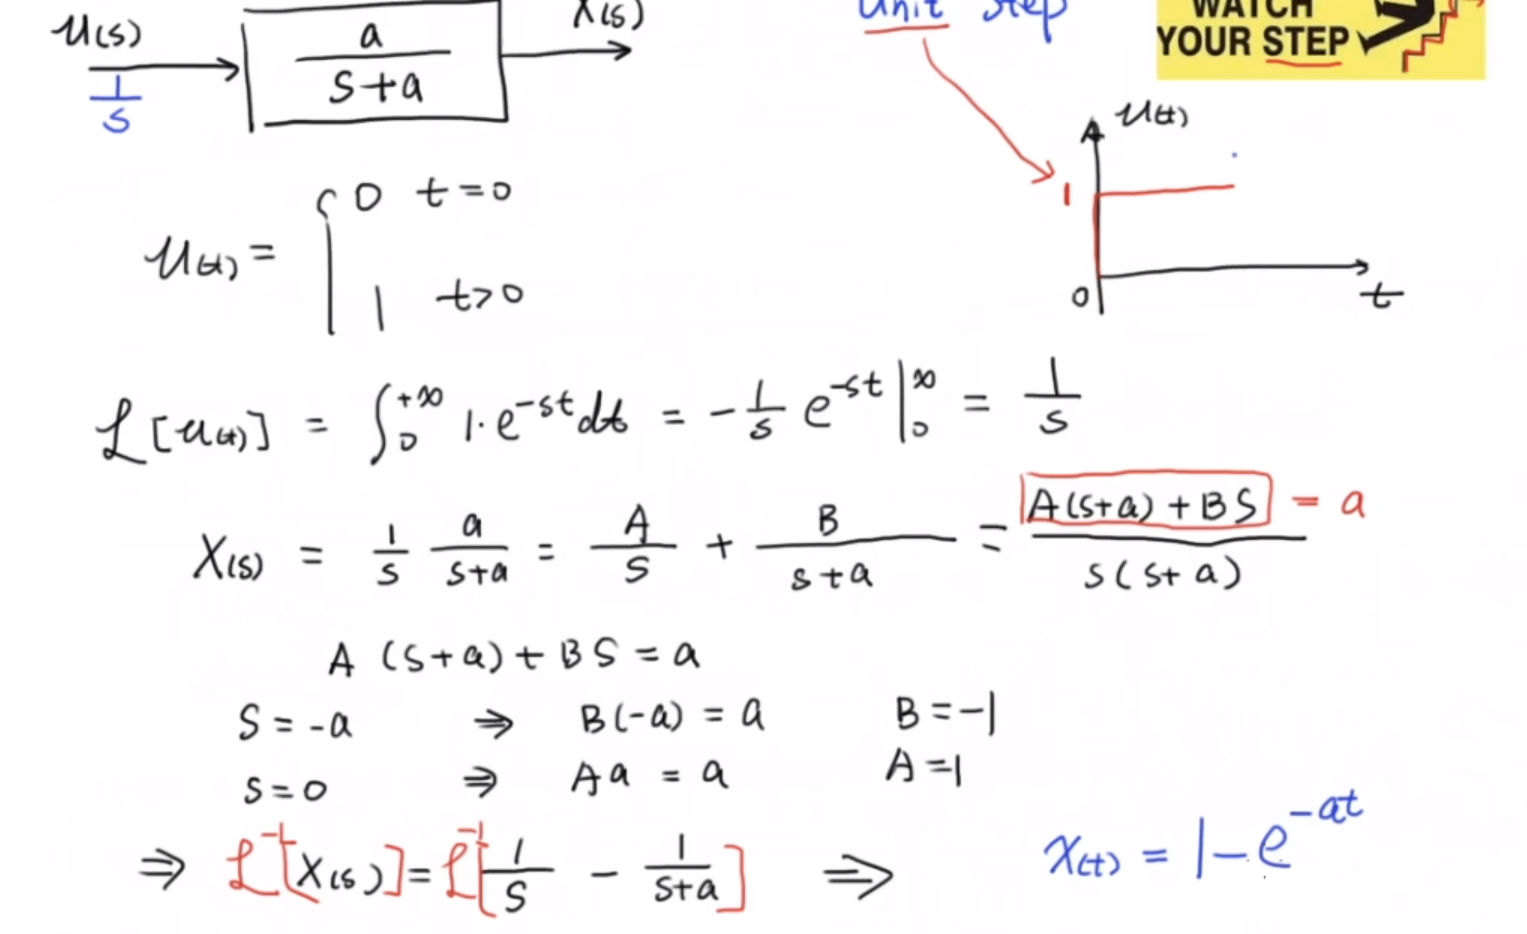 U(s) a/(s+a) X(s)
1/s
Unit Step
WATCH
YOUR STEP
u(t)
1
0
t
u(t) = { 0 t=0
1 t>0
ℒ[u(t)] = ∫₀^{+∞} 1·e^{-st}dt = -1/s e^{-st}|₀^∞ = 1/s
X(s) = 1/s a/(s+a) = A/s + B/(s+a) = (A(s+a)+BS)/(s(s+a)) = a
A(s+a)+BS = a
S=-a ⇒ B(-a) = a B=-1
s=0 ⇒ Aa = a A=1
⇒ ℒ^{-1}[X(s)] = ℒ^{-1}[1/s - 1/(s+a)] ⇒ x(t) = 1-e^{-at}